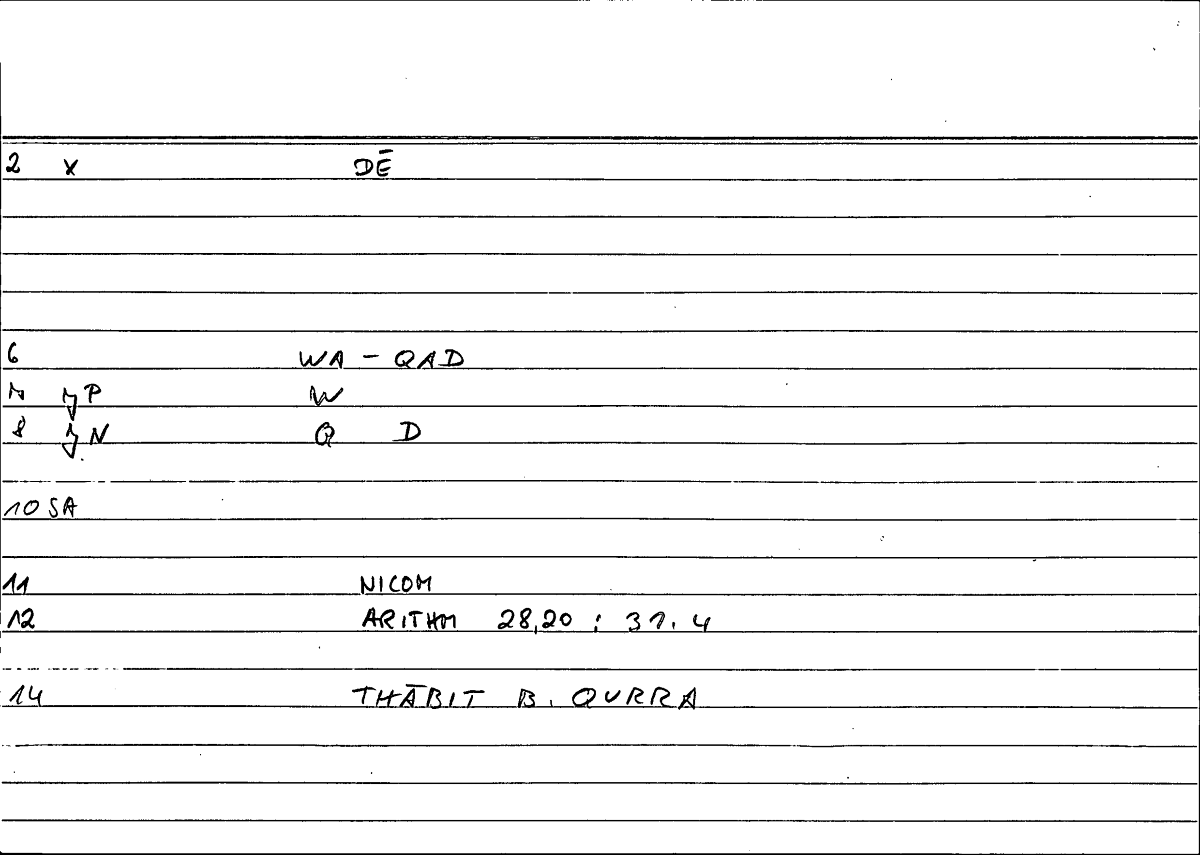 2 X DĒ
6 WA - QAD
P W
8 N Q D
10 SA
11 NICOM
12 ARITHM 28,20 : 31.4
14 THĀBIT B. QURRA